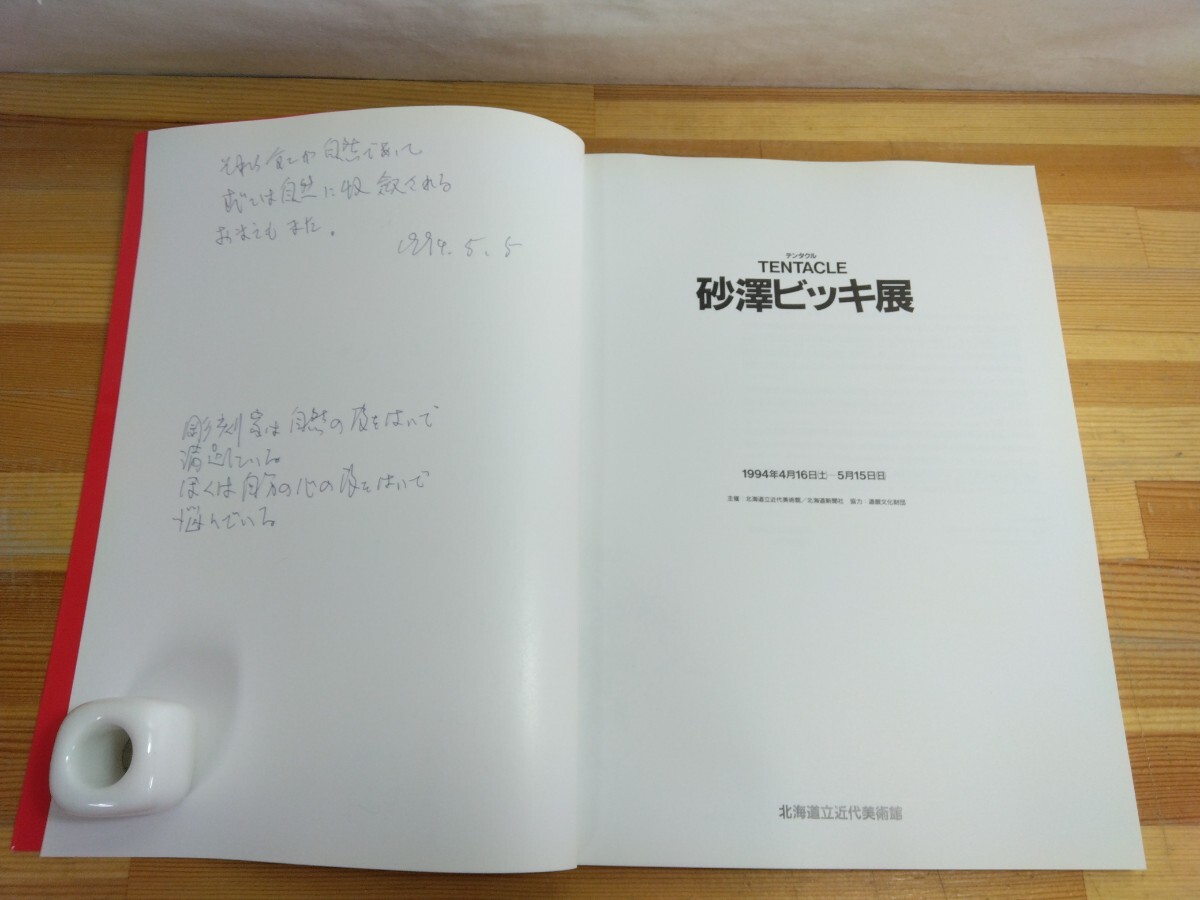 それら全てが自然であって
すべては自然に収斂される
おまえもまた。
1994.5.5
彫刻家は自然の皮をはいで
満足している
ぼくは自分の心の皮をはいで
悩んでいる
テンタクル
TENTACLE
砂澤ビッキ展
1994年4月16日(土)—5月15日(日)
主催:北海道立近代美術館/北海道新聞社 協力:道銀文化財団
北海道立近代美術館